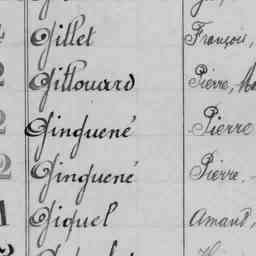 Gillet François,
2 Gillouard Pierre,
2 Ginguené Pierre
2 Ginguené Pierre.
1 Giquel Amand,